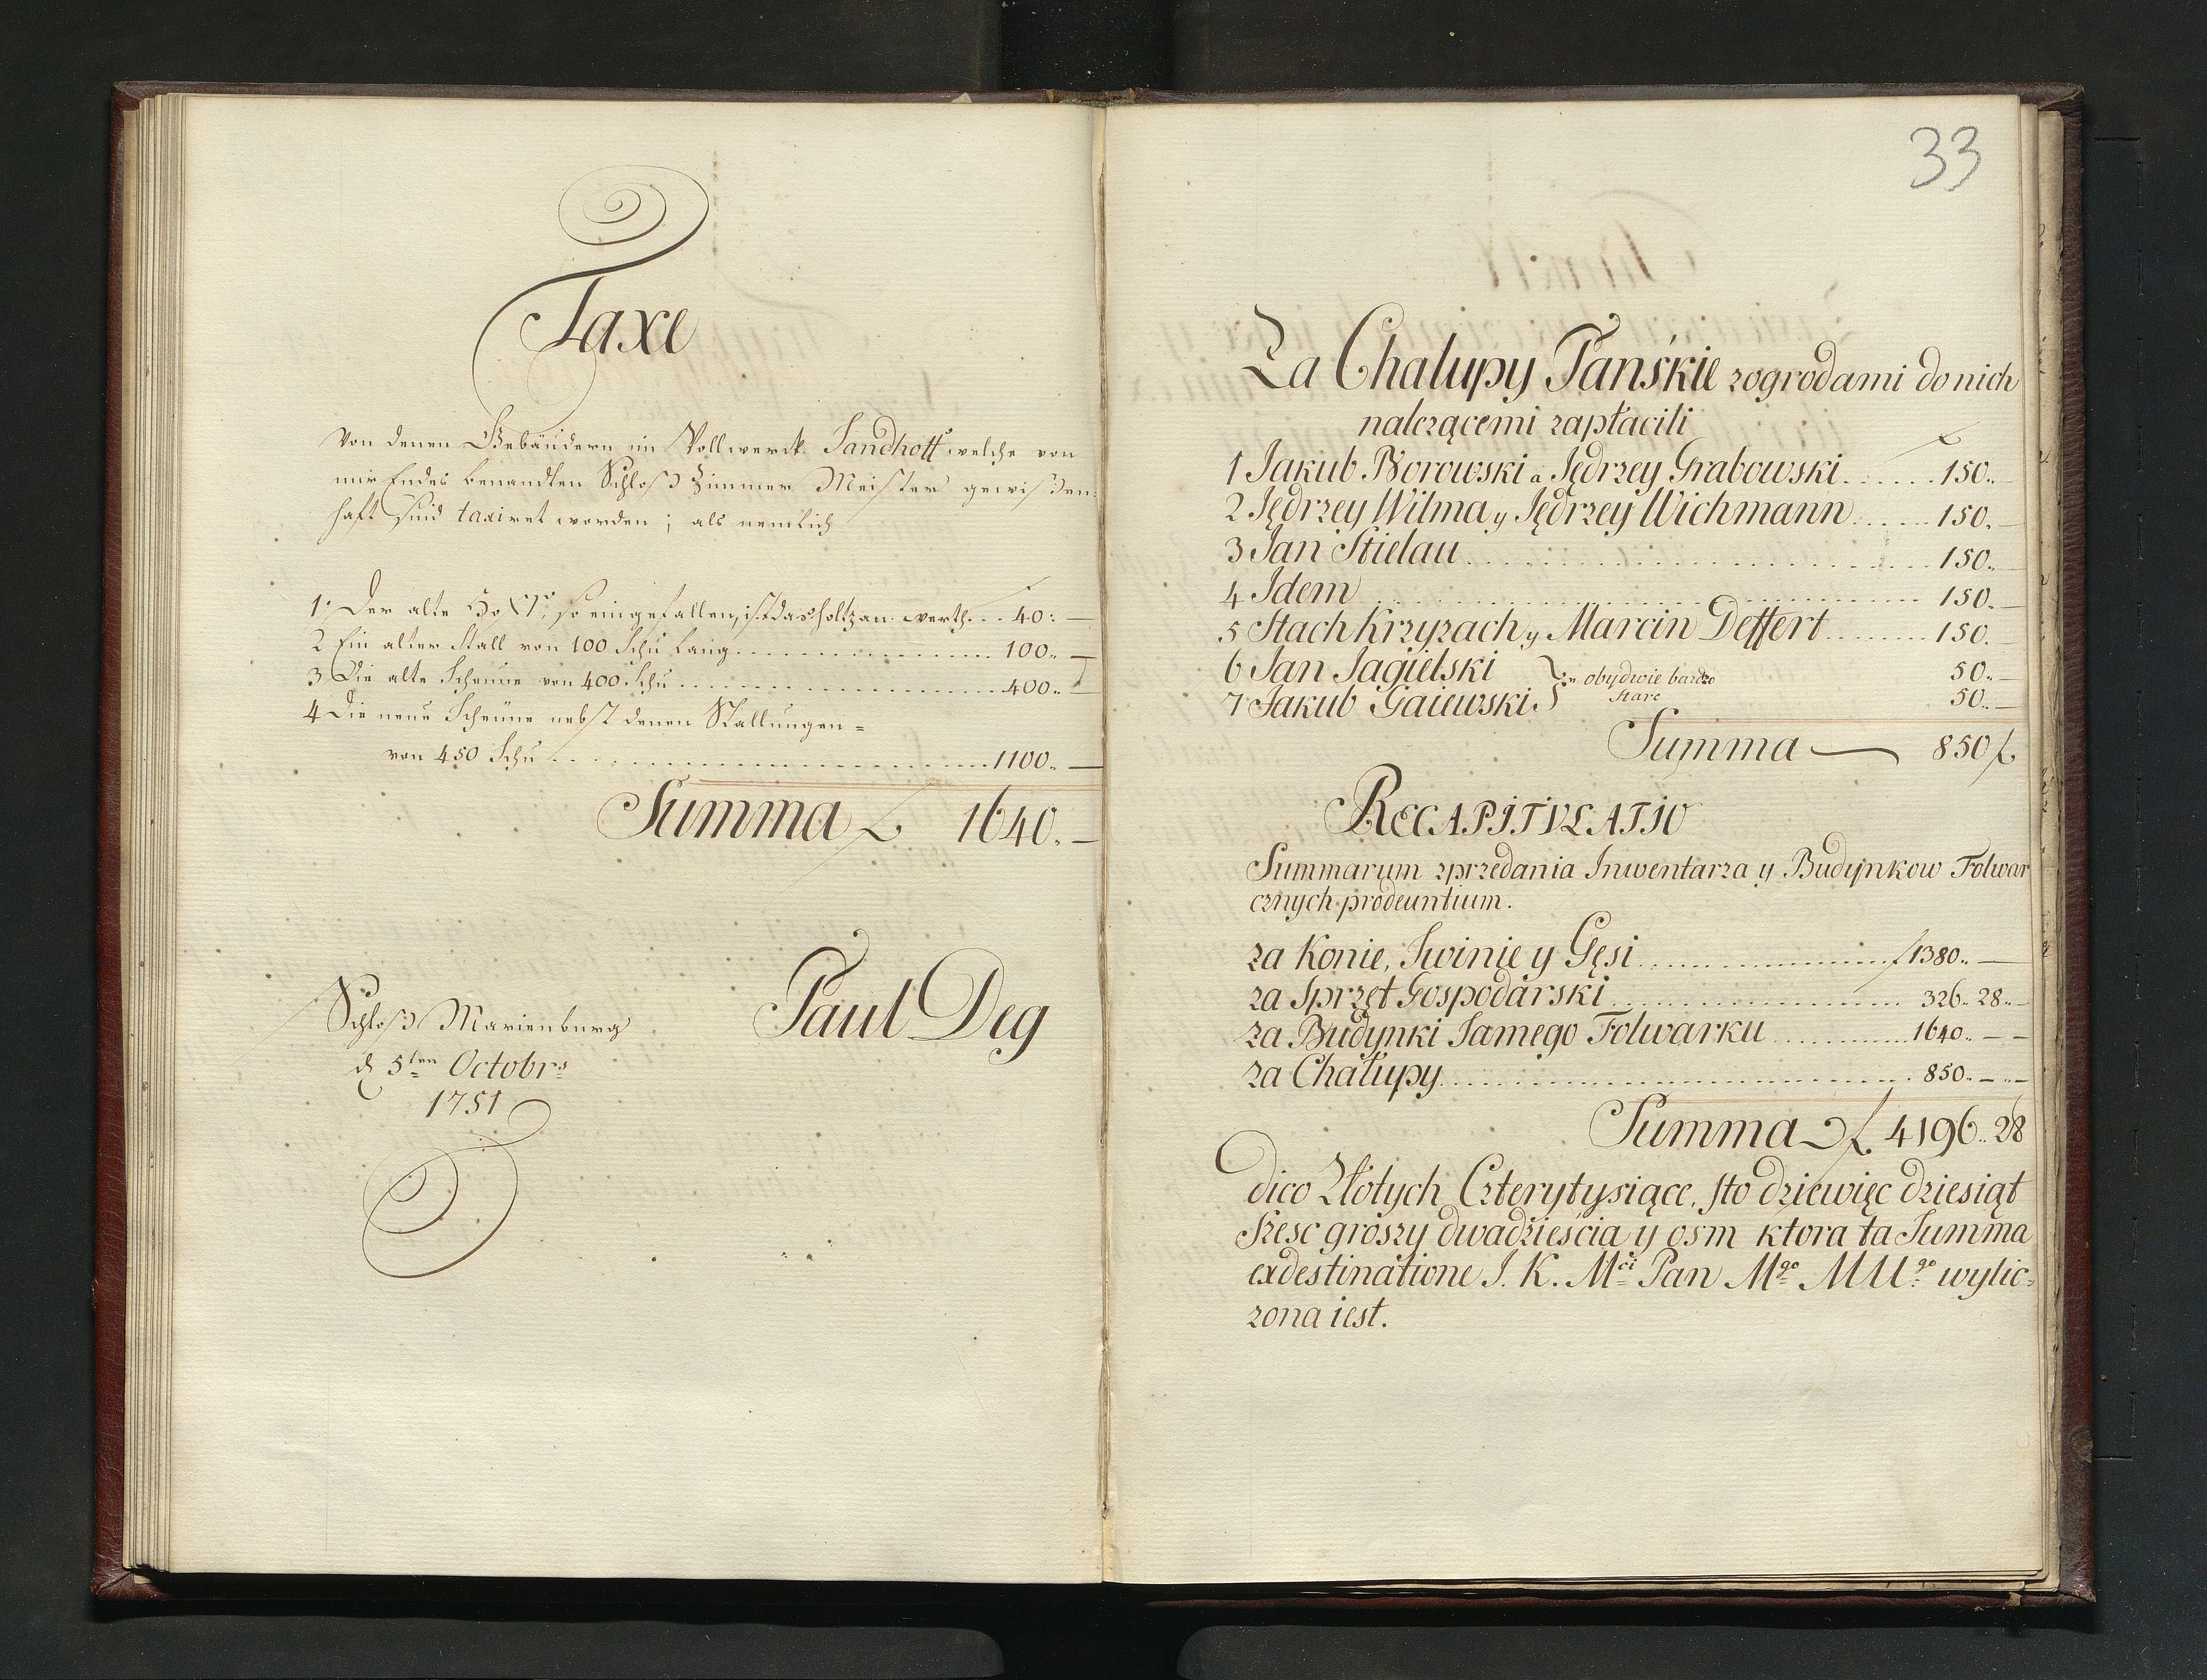 Taxe
Von denen Gebäudern im Vollwerck Sandhoff welche von
mir Endes benandten Schloß Zimmer Meister gewißen-
haft sind taxiret worden; als nemlich
1. Der alte so eingefallen, ist das holtz an werth ... 40: —
2 Ein alter Stall von 100 Schu lang ... 100.. —
3 Die alte Scheune von 400 Schu ... 400.. —
4 Die neue Scheune nebst denen Stallungen =
von 450 Schu ... 1100.. —
Summa f 1640. —
Schloß Marienburg
d 5ten Octobrs
1751
Paul Deg
33
Za Chalupy Pańskie zogrodami do nich
należącemi zapłacili
1 Jakub Borowski a Jędrzey Grabowski ... 150.. —
2 Jędrzey Wilma y Jędrzey Wichmann ... 150. —
3 Jan Stielau ... 150.. —
4 Idem ... 150.. —
5 Stach Krzyzach y Marcin Deffert ... 150. —
6 Jan Jagielski } obydwie bardzo 50.. —
7 Jakub Gaiewski } stare 50.. —
Summa — 850 f
RECAPITVLATIO
Summarum zprzedania Inwentarza y Budynkow Folwar
cznych prodeuntium.
za Konie, Swinie y Gęsi ... f 1380.. —
za Sprzęt Gospodarski ... 326.. 28.. —
za Budynki Samego Folwarku ... 1640.. — —
za Chałupy ... 850.. — .. —
Summa f 4196.. 28
dico Złotych Czterytysiące, sto dziewięc dziesiąt
szesc groszy dwadzieścia y osm ktora ta Summa
exdestinatione J. K. Mci Pan Mgo MUgo wylic=
zona iest.